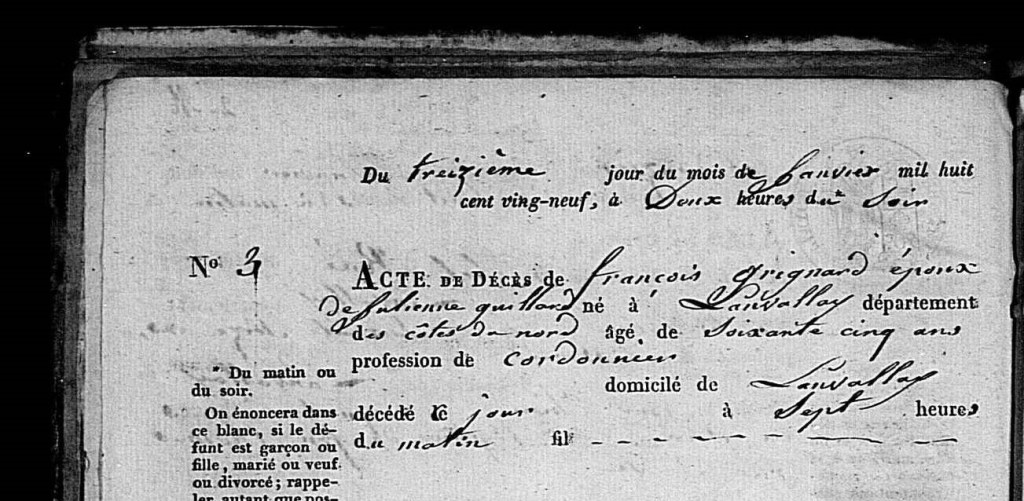 Du treizième jour du mois de Janvier mil huit
cent ving-neuf, à Doux heures du* Soir
No 3
ACTE DE DÉCÈS de françois grignard époux
de Julienne quillard né à Lanvallay département
des côtes du nord âgé de Soixante cinq ans
profession de Cordonnier
domicilé de Lanvallay
décédé le jour à Sept heures
du matin fil
* Du matin ou
du soir.
On énoncera dans
ce blanc, si le dé-
funt est garçon ou
fille, marié ou veuf
ou divorcé; rappe-
ler autant que pos-